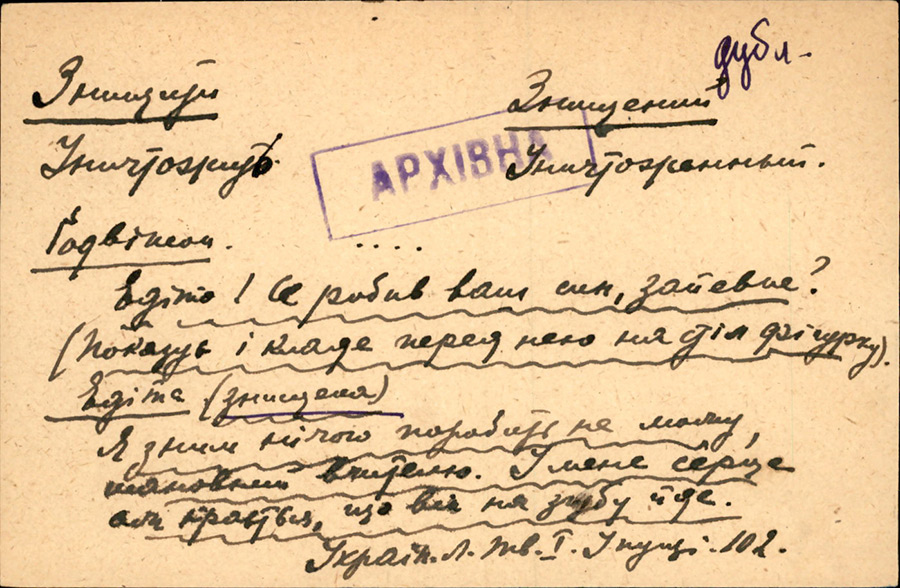 дубл.
Знищити Знищений
Уничтожить Уничтоженный.
АРХІВНА
Годвінсон. ....
Едіто! Се робив ваш син, запевне?
(Показує і кладе перед нею на стіл фігурку).
Едіта (знищена)
Я з ним нічого поробить не можу,
шановний вчителю. У мене серце
аж крається, що він на згубу йде.
Україн. Л. Тв. I. У пущі. 102.